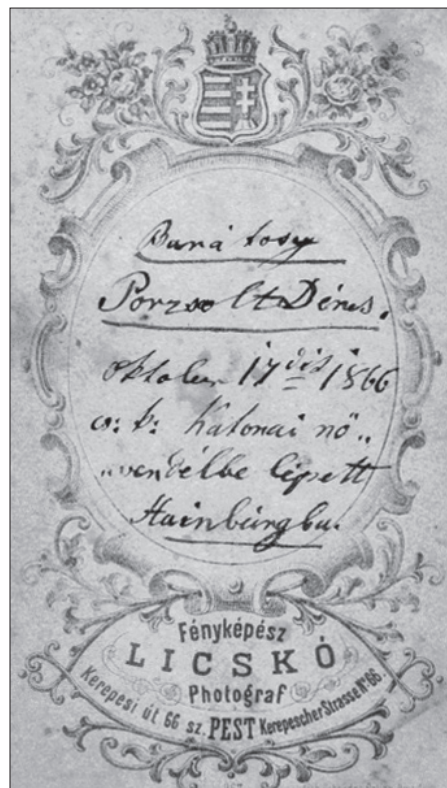 Porzsolt Dénes.
oktober 17 dis 1866
cs: k: Katonai nö„
„vendélbe lépett
Hainbúrgba.
Fényképész
LICSKÓ
Photograf
Kerepesi út 66 sz. PEST Kerepescher Strasse No 66.